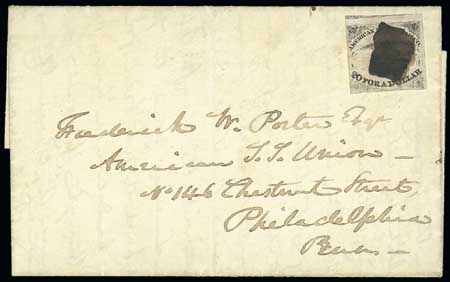 AMERICAN CO.
20 FOR A DOLLAR
Frederick W. Porter Esqr
American S. S. Union —
No 146 Chestnut Street,
Philadelphia
Penn —